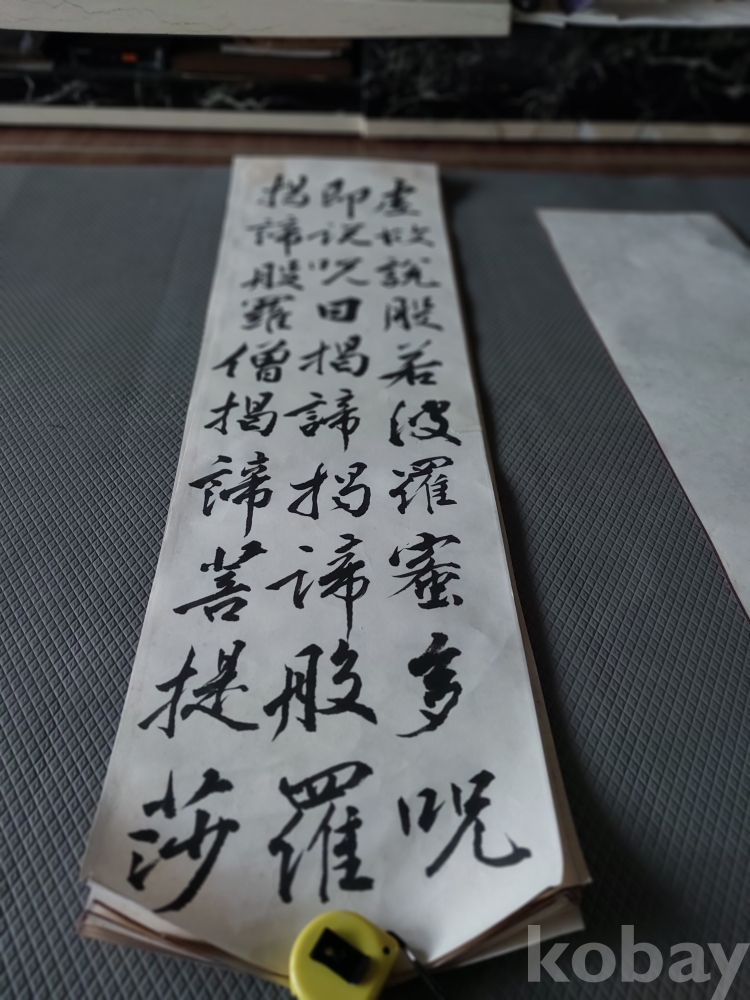 虛故說般若波羅蜜多呪
即說呪曰揭諦揭諦般羅
揭諦般羅僧揭諦菩提莎
kobay